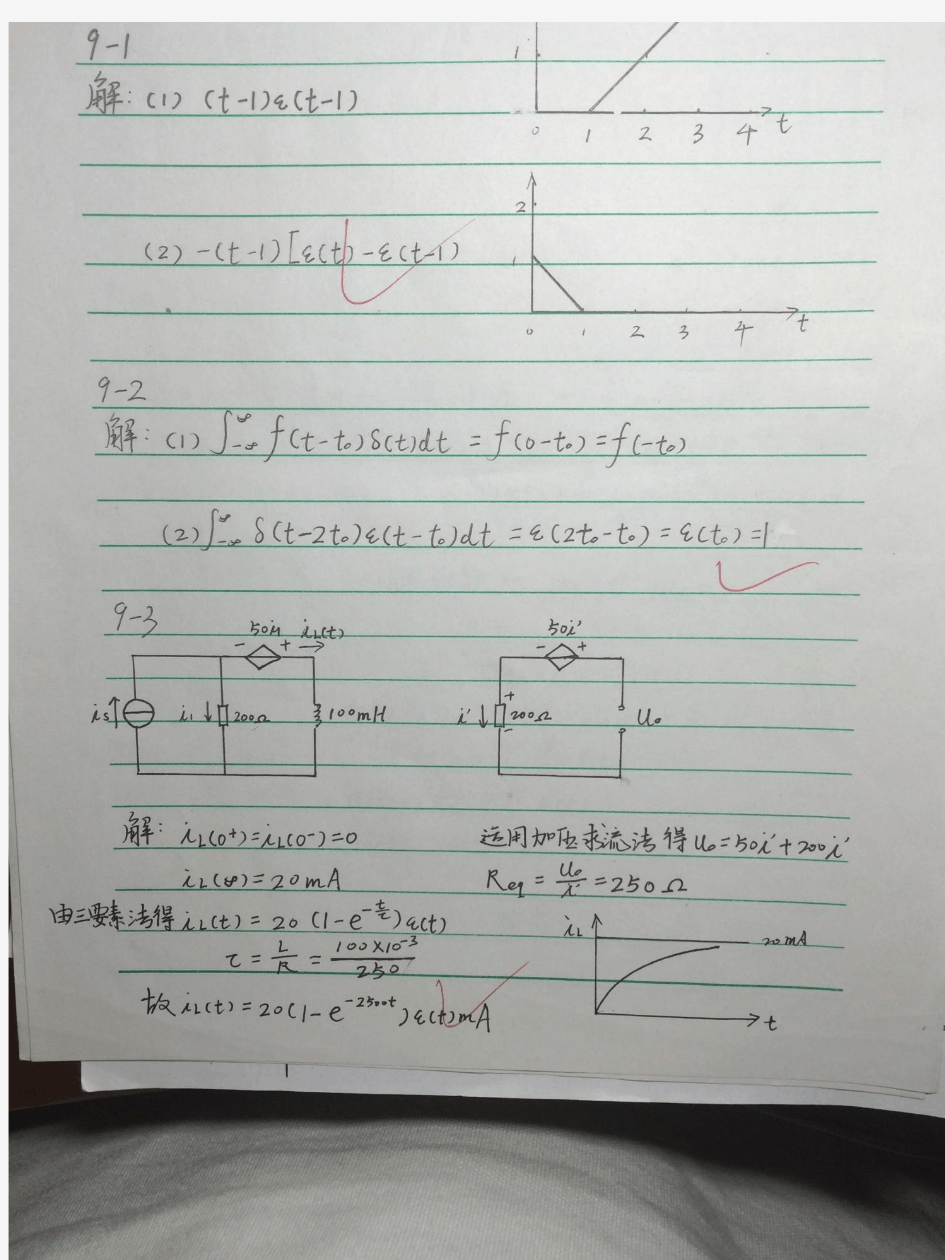 9-1
1
解: (1) (t-1)ε(t-1)
0 1 2 3 4 t
2
(2) -(t-1)[ε(t)-ε(t-1)
1
0 1 2 3 4 t
9-2
解: (1) ∫_{-∞}^{∞} f(t-t₀)δ(t)dt = f(0-t₀) = f(-t₀)
(2) ∫_{-∞}^{∞} δ(t-2t₀)ε(t-t₀)dt = ε(2t₀-t₀) = ε(t₀) = 1
9-3
50i₁ i_L(t) 50i'
- + - +
i_s i₁ 200Ω 100mH i' + 200Ω - U₀
解: i_L(0⁺)=i_L(0⁻)=0 运用加压求流法得 U₀=50i'+200i'
i_L(∞)=20mA Req = U₀/i' = 250Ω
由三要素法得 i_L(t) = 20 (1-e^{-t/τ})ε(t) i_L 20mA
τ = L/R = 100×10⁻³/250
故 i_L(t)=20(1-e^{-2500t})ε(t)mA t